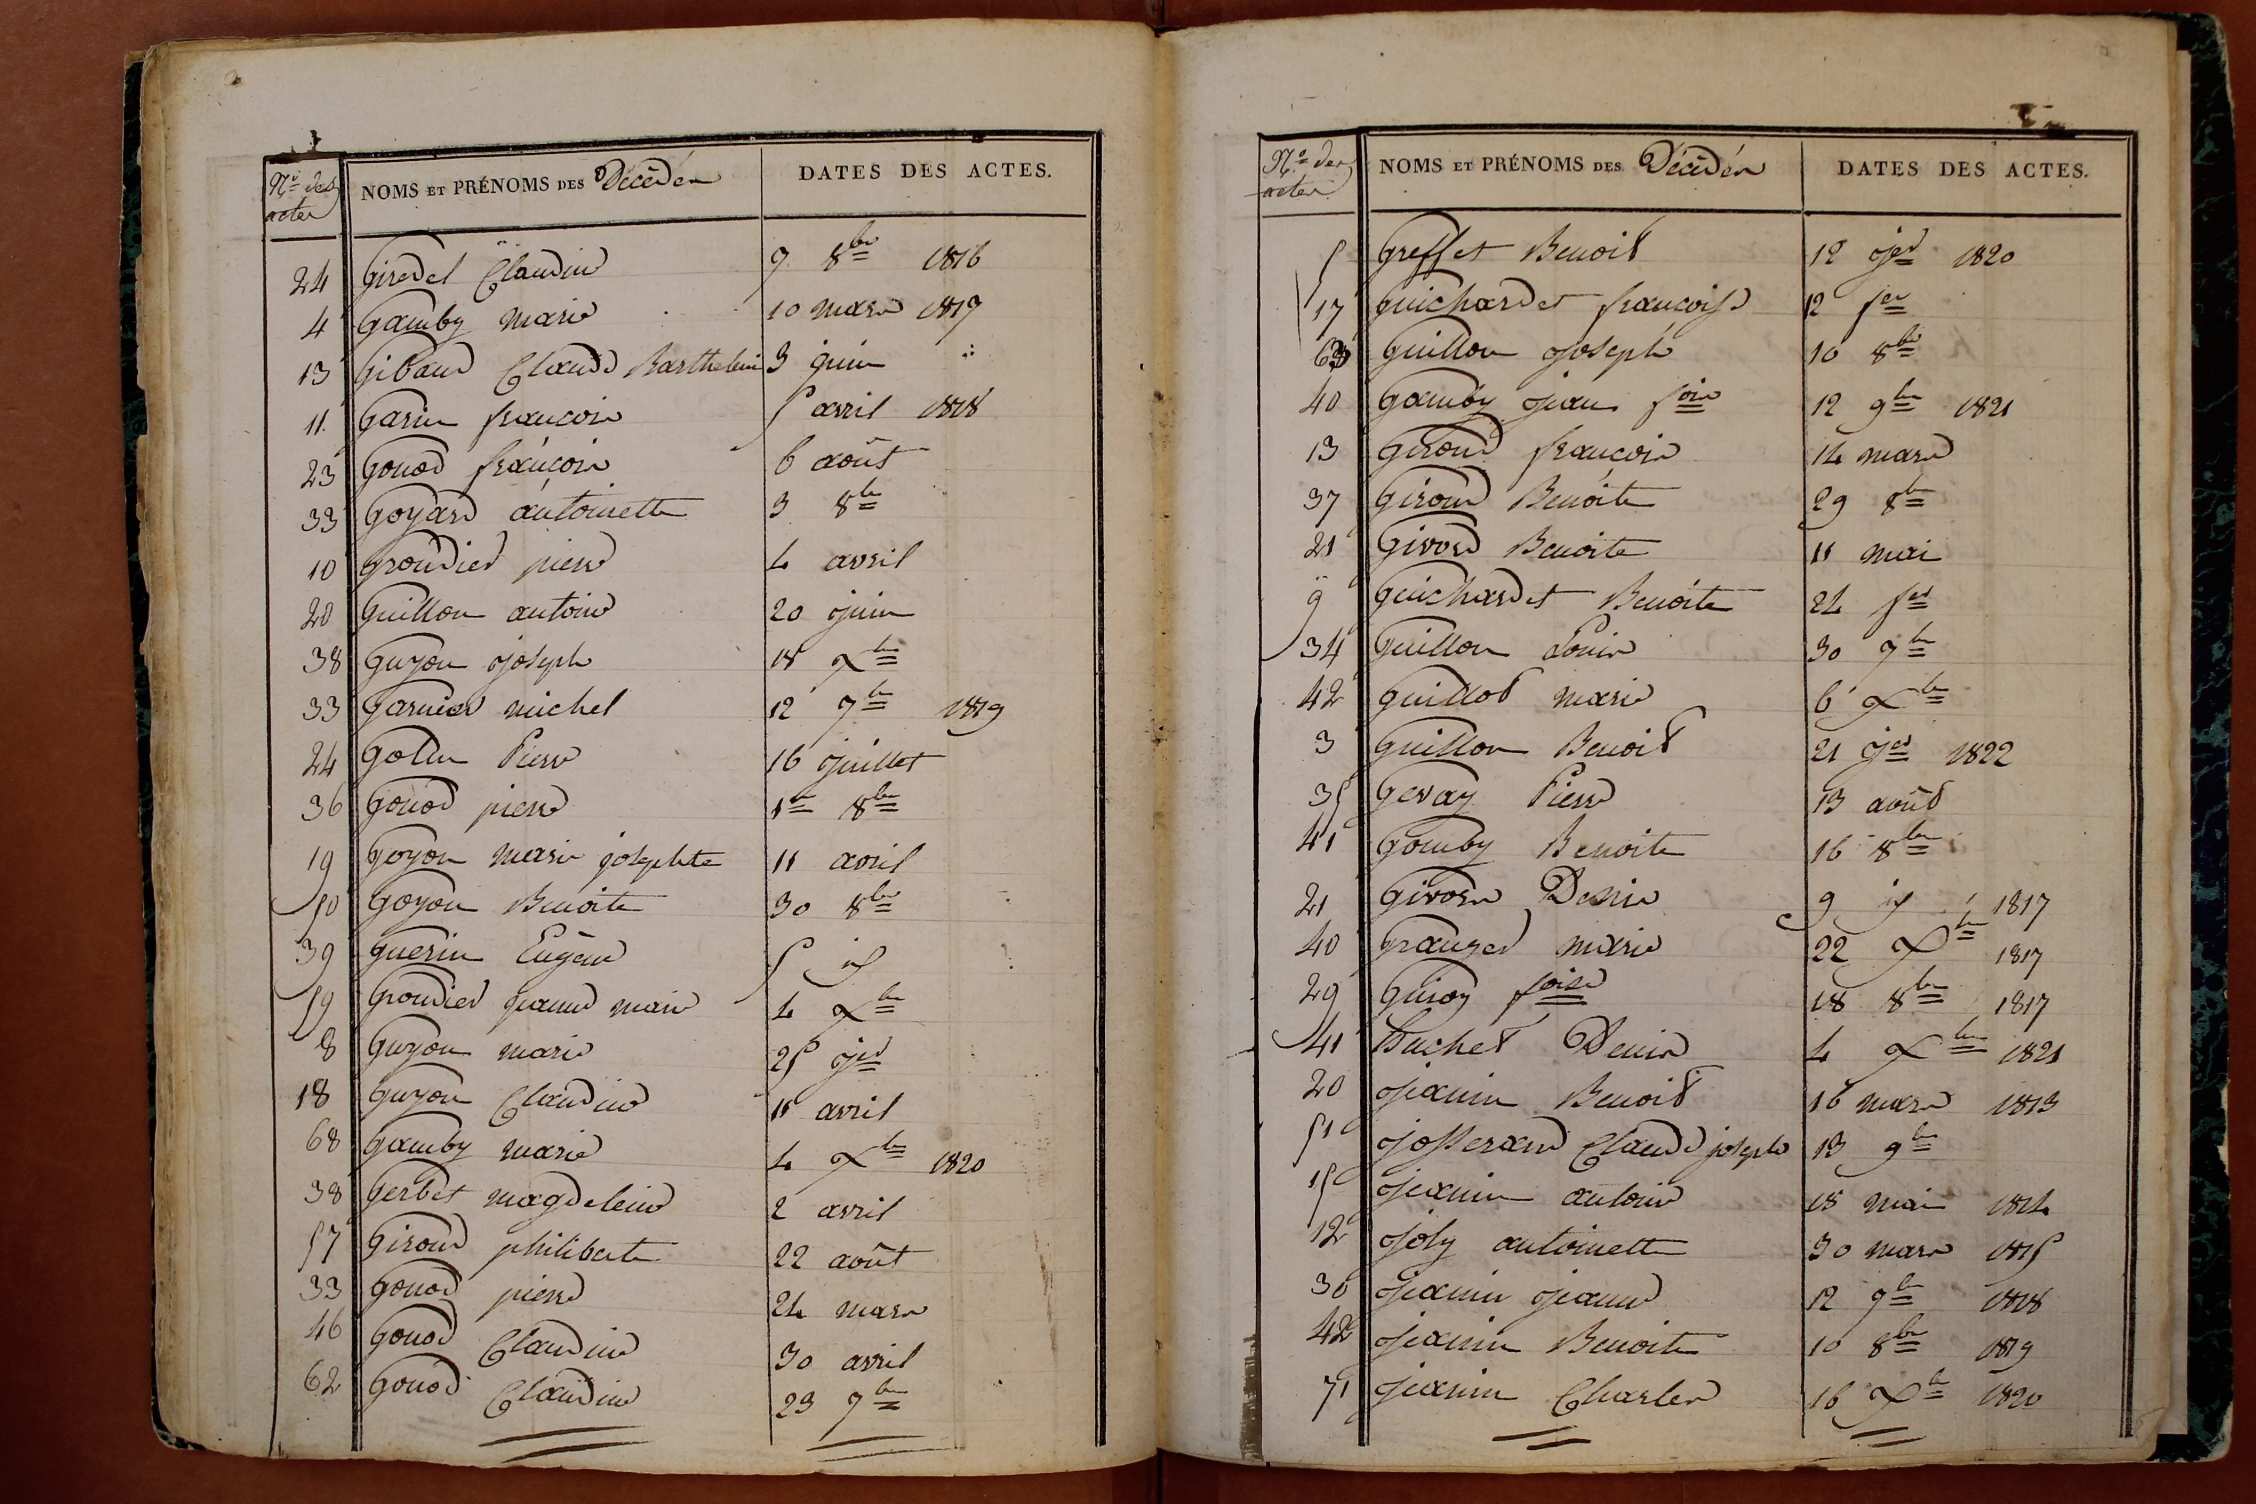 Nos des actes NOMS ET PRÉNOMS DES Décédés DATES DES ACTES.
24 Giredel Claudine 9 8bre 1816
4 Gamby marie 10 mars 1817
13 Gibaud Claude Barthelemi 3 juin "
11 Garin françois 5 avril 1818
23 Gonod françois 6 août
33 Goyard antoinette 3 8bre
10 Grondier pierre 4 avril
20 Guillon antoine 20 juin
38 Guyon joseph 18 Xbre
33 Garnier michel 12 7bre 1819
24 Pierre 16 juillet
36 Gonod pierre 1er 8bre
19 Goyon marie josephte 11 avril
50 Goyon Benoite 30 8bre
39 Guerin Eugene 5
59 Grondier jeanne marie 4 Xbre
8 Guyon marie 25 jer
18 Guyon Claudine 11 avril
68 Gamby marie 4 Xbre 1820
38 Gerbet magdeleine 2 avril
57 Giroud philiberte 22 août
33 Gonod pierre 24 mars
46 Gonod Claudine 30 avril
62 Gonod Claudine 23 7bre
Nos des actes NOMS ET PRÉNOMS DES Décédés DATES DES ACTES.
5 Greffet Benoit 12 jer 1820
17 Guichardet françoise 12 fer
63 Guillon joseph 10 8bre
40 Gamby jean foise 12 9bre 1821
13 Giroud françois 14 mars
37 Giroud Benoite 29 8bre
21 Givord Benoite 11 mai
9 Guichardet Benoite 24 fer
34 Guillon Louis 30 7bre
42 Guillot marie 6 Xbre
3 Guillon Benoit 21 jer 1822
35 Gevay Pierre 13 août
41 Gamby Benoite 16 8bre
21 Givord Denis 9 1817
40 Granger marie 22 Xbre 1817
29 foise 18 8bre 1817
41 Huchet Denis 4 Xbre 1821
20 Jeanin Benoit 16 mars 1813
51 Josserand Claude joseph 13 9bre
15 Jeanin antoine 18 mai 1814
12 Joly antoinette 30 mars 1815
30 Jeanin jeanne 12 9bre 1818
42 Jeanin Benoite 10 8bre 1819
71 Jeanin Charles 16 Xbre 1820